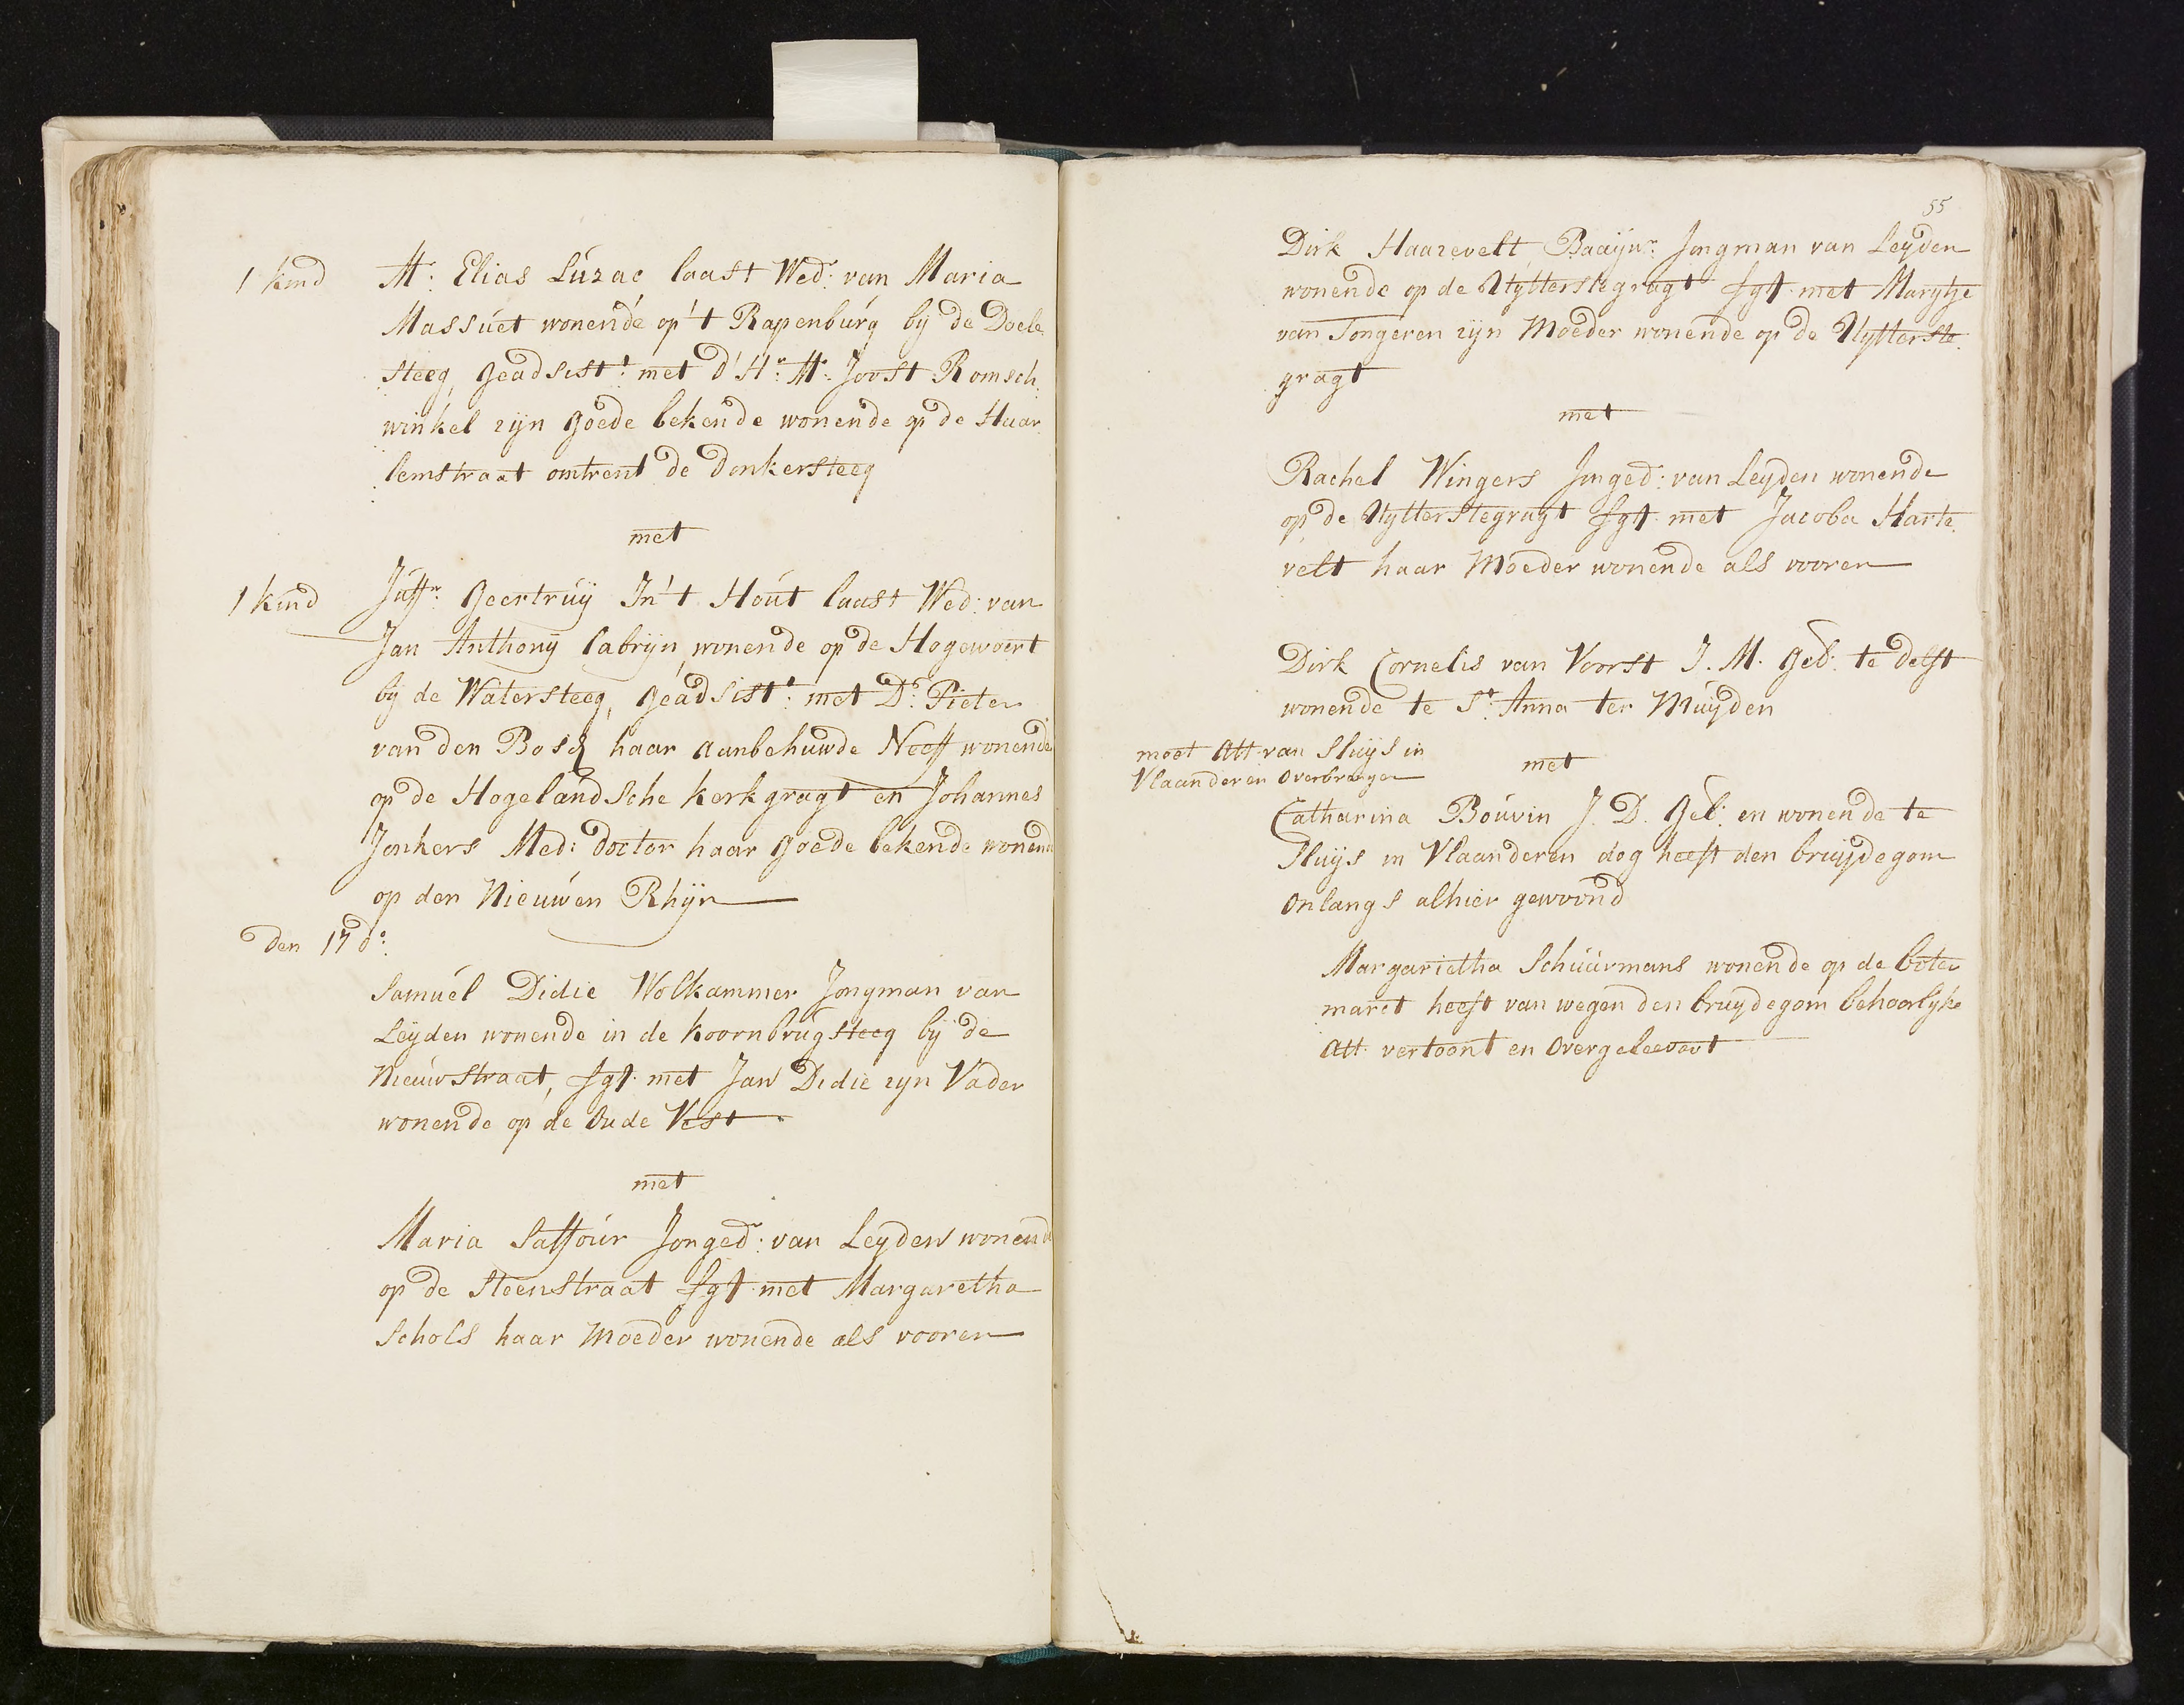 1 kind Mr: Elias Luzac laast Wedr: van Maria
Massuet wonende op 't Rapenburg bij de Doele
steeg, geadsistt: met d'Hr: Mr: Joost Romsch
winkel zijn goede bekende wonende op de Haar
lemstraat omtrent de donkersteeg
met
1 kind Juffr: Geertruij In 't Hout laast Wed: van
Jan Anthonij Cabrijn, wonende op de Hogewoert
bij de Watersteeg, geadsistt: met Dr: Pieter
van den Bosch haar aanbehuwde Neeff wonende
op de Hogelandsche kerkgragt en Johannes
Jonkers Med: doctor haar goede bekende wonend
op den Nieuwen Rhijn
den 17 do:
Samuel Didie Wolkammer Jongman van
Leijden wonende in de koornbrugsteeg bij de
Nieuwstraat, fgt met Jan Didie zijn Vader
wonende op de Oude Vest
met
Maria Saffour Jonged: van Leyden wonend
op de Steenstraat fgt met Margaretha
Schols haar Moeder wonende als vooren
55
Dirk Haazevelt, Baaijwr: Jongman van Leyden
wonende op de Uytterstegragt fgt met Marytje
van Tongeren zijn Moeder wonende op de Uytterste
gragt
met
Rachel Wingers Jonged: van Leyden wonende
op de Uytterstegragt fgt met Jacoba Harte
velt haar Moeder wonende als vooren
Dirk Cornelis van Voorst J. M. geb: te delft
wonende te St: Anna ter Muijden
moet Att. van Sluijs in
Vlaanderen Overbrengen
met
Catharina Bouvin J. D. geb: en wonende te
Sluijs in Vlaanderen dog heeft den bruijdegom
onlangs alhier gewoond
Margarietha Schuurmans wonende op de boter
marct heeft van wegen den bruydegom behoorlyke
Att. vertoont en Overgeleevert